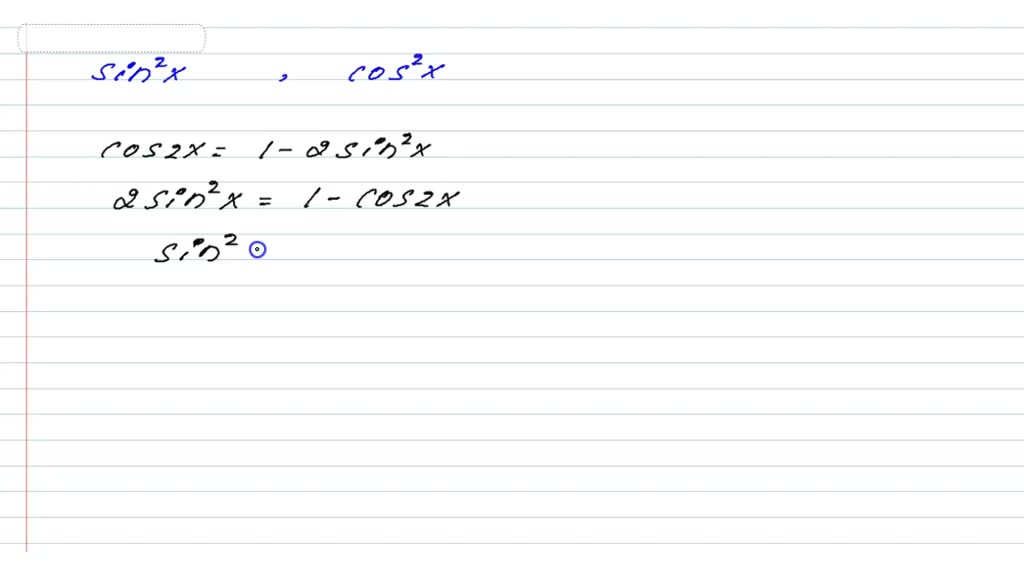 sin²x , cos²x
cos2x = 1 - 2sin²x
2sin²x = 1 - cos2x
sin²